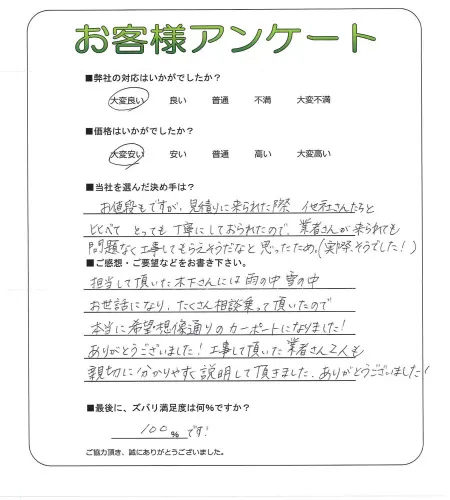 お客様アンケート
■弊社の対応はいかがでしたか？
大変良い 良い 普通 不満 大変不満
■価格はいかがでしたか？
大変安い 安い 普通 高い 大変高い
■当社を選んだ決め手は？
お値段もですが、見積りに来られた際 他社さんたちと
比べて とっても丁寧にしておられたので、業者さんが来られても
問題なく工事してもらえそうだなと思ったため。(実際そうでした！)
■ご感想・ご要望などをお書き下さい。
担当して頂いた木下さんには 雨の中 雪の中
お世話になり、たくさん相談乗って頂いたので
本当に希望想像通りのカーポートになりました！
ありがとうございました！工事して頂いた業者さん2人も
親切に分かりやすく説明して頂きました、ありがとうございました！
■最後に、ズバリ満足度は何%ですか？
100 % です！
ご協力頂き、誠にありがとうございました。